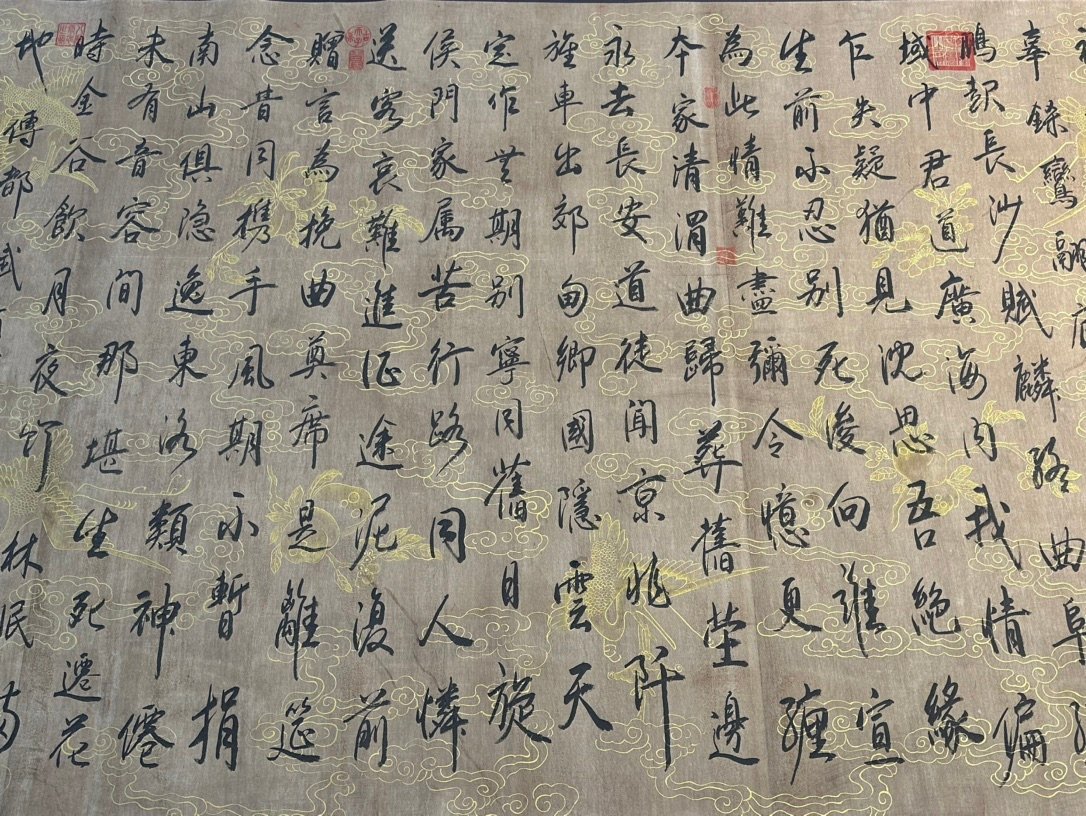 辜銶鸞翮
鵩契長沙賦麟終曲阜
域中君道廣海内我情偏
乍失疑猶見沈思吾絕緣
生前不忍別死後向誰宣
為此情難盡彌令憶更纏
本家清渭曲歸葬舊塋邊
永去長安道徒聞京兆阡
旌車出郊甸鄉國隱雲天
定作無期別寧同舊日旋
侯門家属苦行路同人憐
送客哀難進征途泥復前
贈言為挽曲奠席是離筵
念昔同携手風期不暫捐
南山俱隐逸東洛類神僊
未有音容間那堪生死遷花
時金谷飲月夜竹林眠滿
地傳都賦